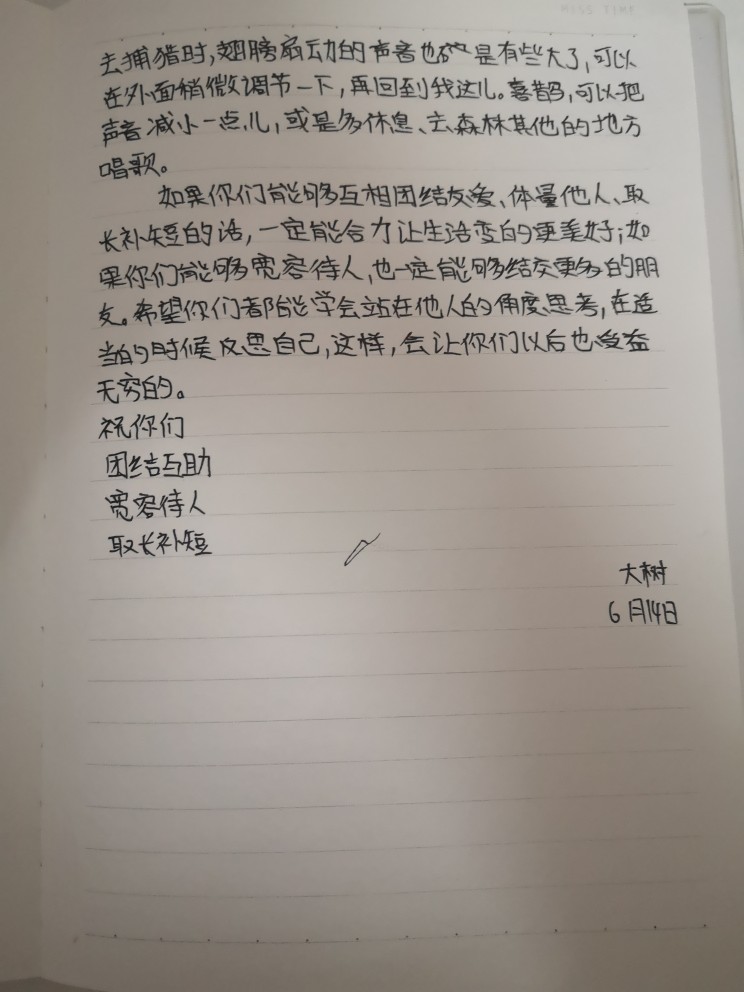 去捕猎时,翅膀扇动的声音也确是有些大了,可以
在外面稍微调节一下,再回到我这儿。喜鹊,可以把
声音减小一点儿,或是多休息、去森林其他的地方
唱歌。
如果你们能够互相团结友爱、体量他人、取
长补短的话,一定能合力让生活变的更美好;如
果你们能够宽容待人,也一定能够结交更多的朋
友。希望你们都能学会站在他人的角度思考,在适
当的时候反思自己,这样,会让你们以后也受益
无穷的。
祝你们
团结互助
宽容待人
取长补短
大树
6月14日